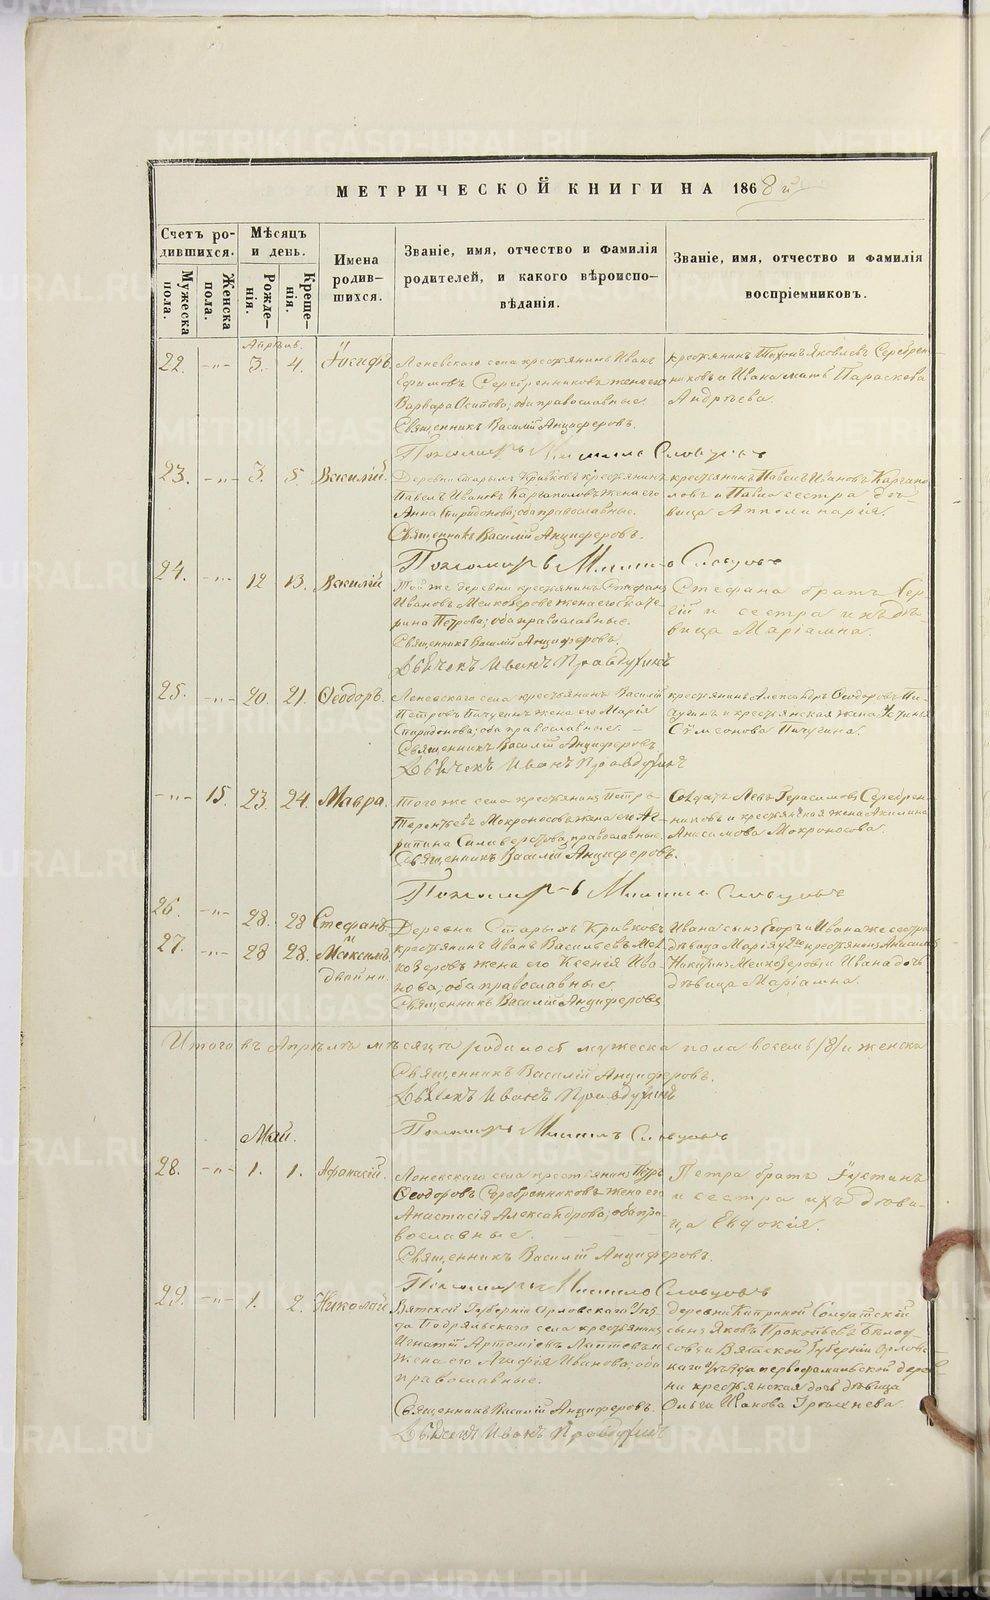 МЕТРИЧЕСКОЙ КНИГИ НА 1868 й
Счетъ ро-
дившихся.
Мужеска
пола.
Женска
пола.
Мѣсяцъ
и день.
Рожде-
нія.
Креще-
нія.
Имена
родив-
шихся.
Званіе, имя, отчество и фамилія
родителей, и какого вѣроиспо-
вѣданія.
Званіе, имя, отчество и фамилія
воспріемниковъ.
22. -"- 3. 4.
Леневскаго села крестьянинъ Иванъ
Ефимовъ Серебренниковъ жена его
Варвара Осипова; оба православные.
Священникъ Василій Анциферовъ.
крестьянинъ Тихонъ Яковлевъ Серебрен-
никовъ и Ивана мать Параскева
Андреева.
Пономарь
23. -"- 3. 5. Василій.
Деревни Старыхъ Кривковъ крестьянинъ
Павелъ Ивановъ Каргаполовъ жена его
Анна Спиридонова; оба православные.
Священникъ Василій Анциферовъ.
крестьянинъ Павелъ Ивановъ Каргапо-
ловъ и Павла сестра дѣ-
вица Апполинарія.
Пономарь
24. -"- 12 13. Василій
Той же деревни крестьянинъ Стефанъ
Ивановъ Мелкозеровъ жена его Екате-
рина Петрова; оба православные.
Священникъ Василій Анциферовъ.
Стефана братъ Сер-
гій и сестра ихъ дѣ-
вица Маріамна.
Дьячекъ Иванъ Правдухинъ
25. -"- 20. 21. Ѳеодоръ.
Леневскаго села крестьянинъ Василій
Петровъ Пичугинъ жена его Марія
Спиридонова; оба православные.
Священникъ Василій Анциферовъ
крестьянинъ Александръ Ѳеодоровъ Пи-
чугинъ и крестьянская жена Устинья
Сѵмеонова Пичугина.
Дьячекъ Иванъ Правдухинъ
-"- 15. 23. 24. Мавра.
Того же села крестьянинъ Петръ
Терентьевъ Мокроносовъ жена его Аг-
рипина Силверстова; православные.
Священникъ Василій Анциферовъ.
Солдатъ Левъ Герасимовъ Серебрен-
никовъ и крестьянская жена Акилина
Анисимова Мокроносова.
Пономарь
26. -"- 28. 28 Стефанъ
27. -"- 28 28. Максимъ
двойни.
Деревни Старыхъ Кривковъ
крестьянинъ Иванъ Васильевъ Мел-
козеровъ жена его Ксенія Ива-
нова; оба православные.
Священникъ Василій Анциферовъ
Ивана сынъ Егоръ и Ивана же сестра
дѣвица Марія; у 2го крестьянинъ
Никитинъ Мелкозеровъ и Ивана дочь
дѣвица Маріамна.
Итого въ Апрѣлѣ мѣсяцѣ родилось мужеска пола восемь /8/ и женска
Священникъ Василій Анциферовъ.
Дьячекъ Иванъ Правдухинъ
Пономарь
Май.
28. -"- 1. 1. Афанасій.
Леневскаго села крестьянинъ Петръ
Ѳеодоровъ Серебренниковъ жена его
Анастасія Александрова; оба пра-
вославные.
Священникъ Василій Анциферовъ.
Петра братъ Іустинъ
и сестра ихъ дѣви-
ца Евдокія.
Пономарь
29. -"- 1. 2. Николай
Вятской Губерніи Орловскаго Уѣз-
да села крестьянинъ
Игнатій Артеміевъ Лаптевъ и
жена его Агафія Иванова; оба
православные.
Священникъ Василій Анциферовъ.
деревни Солдатскій
сынъ Яковъ Прокопьевъ
Вятской Губерніи Орловс-
каго Уѣзда дерев-
ни крестьянская дочь дѣвица
Ольга Иванова
Дьячекъ Иванъ Правдухинъ
METRIKI.GASO-URAL.RU